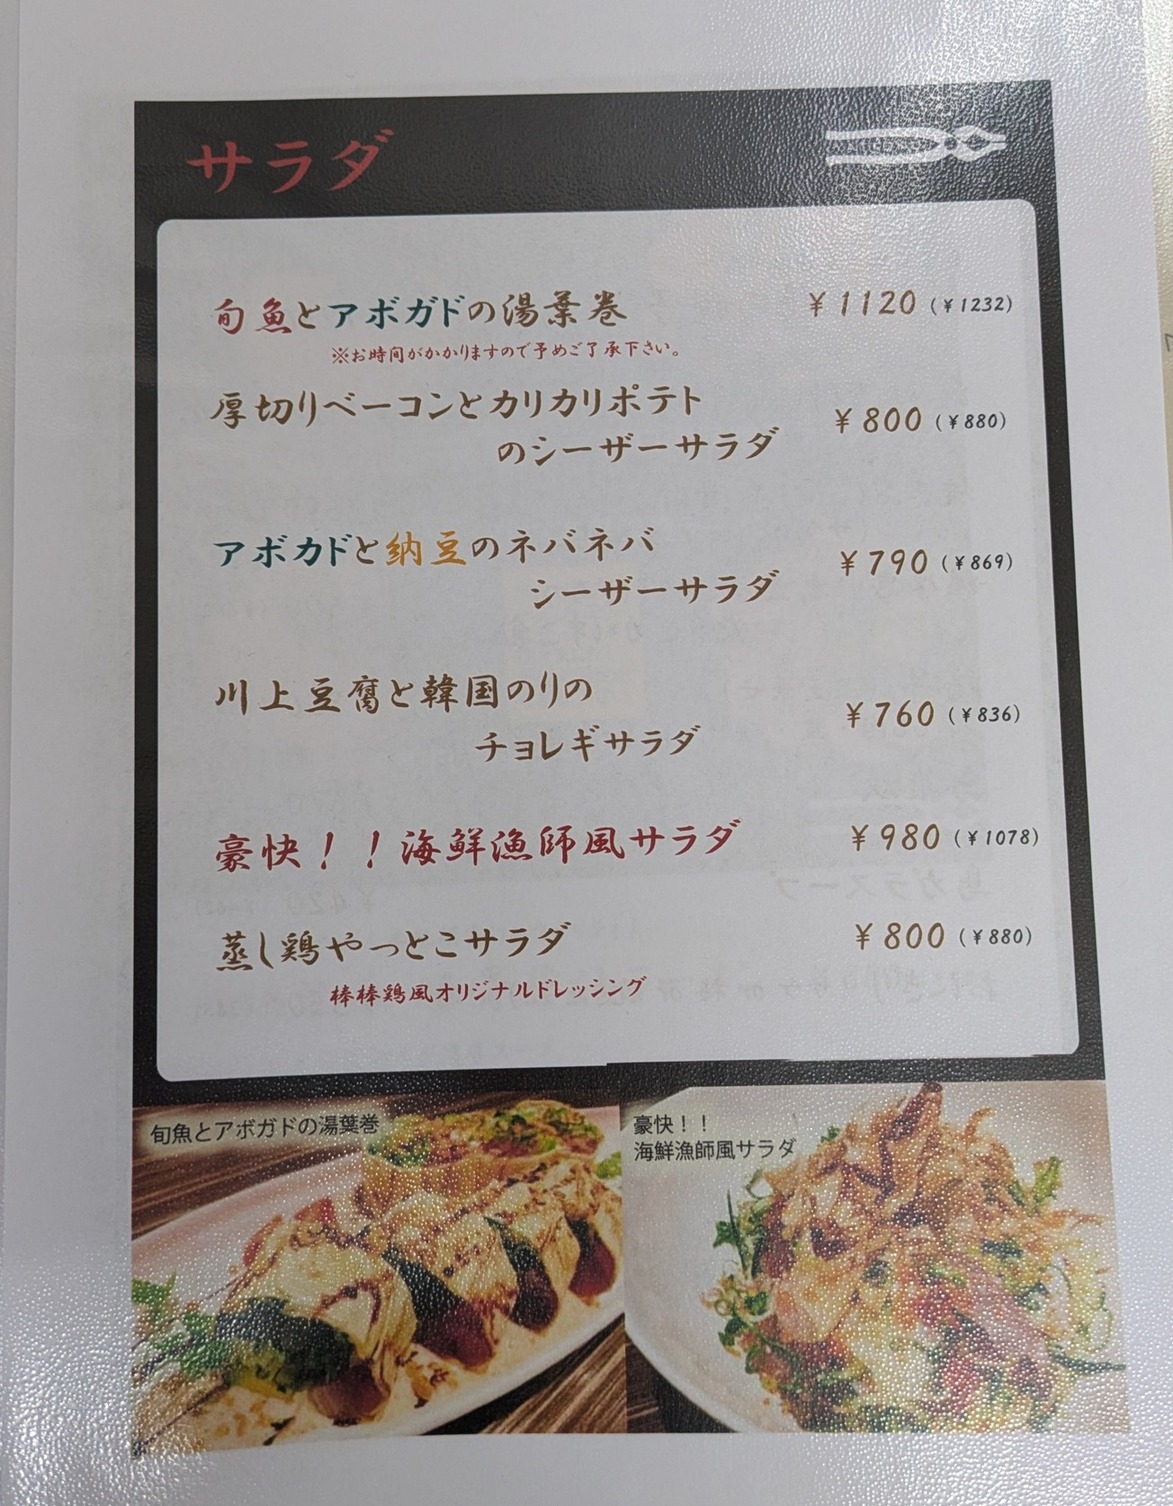 サラダ
旬魚とアボガドの湯葉巻 ¥1120(¥1232)
※お時間がかかりますので予めご了承下さい。
厚切りベーコンとカリカリポテト
のシーザーサラダ ¥800(¥880)
アボカドと納豆のネバネバ
シーザーサラダ ¥790(¥869)
川上豆腐と韓国のりの
チョレギサラダ ¥760(¥836)
豪快！！海鮮漁師風サラダ ¥980(¥1078)
蒸し鶏やっとこサラダ ¥800(¥880)
棒棒鶏風オリジナルドレッシング
旬魚とアボガドの湯葉巻
豪快！！
海鮮漁師風サラダ